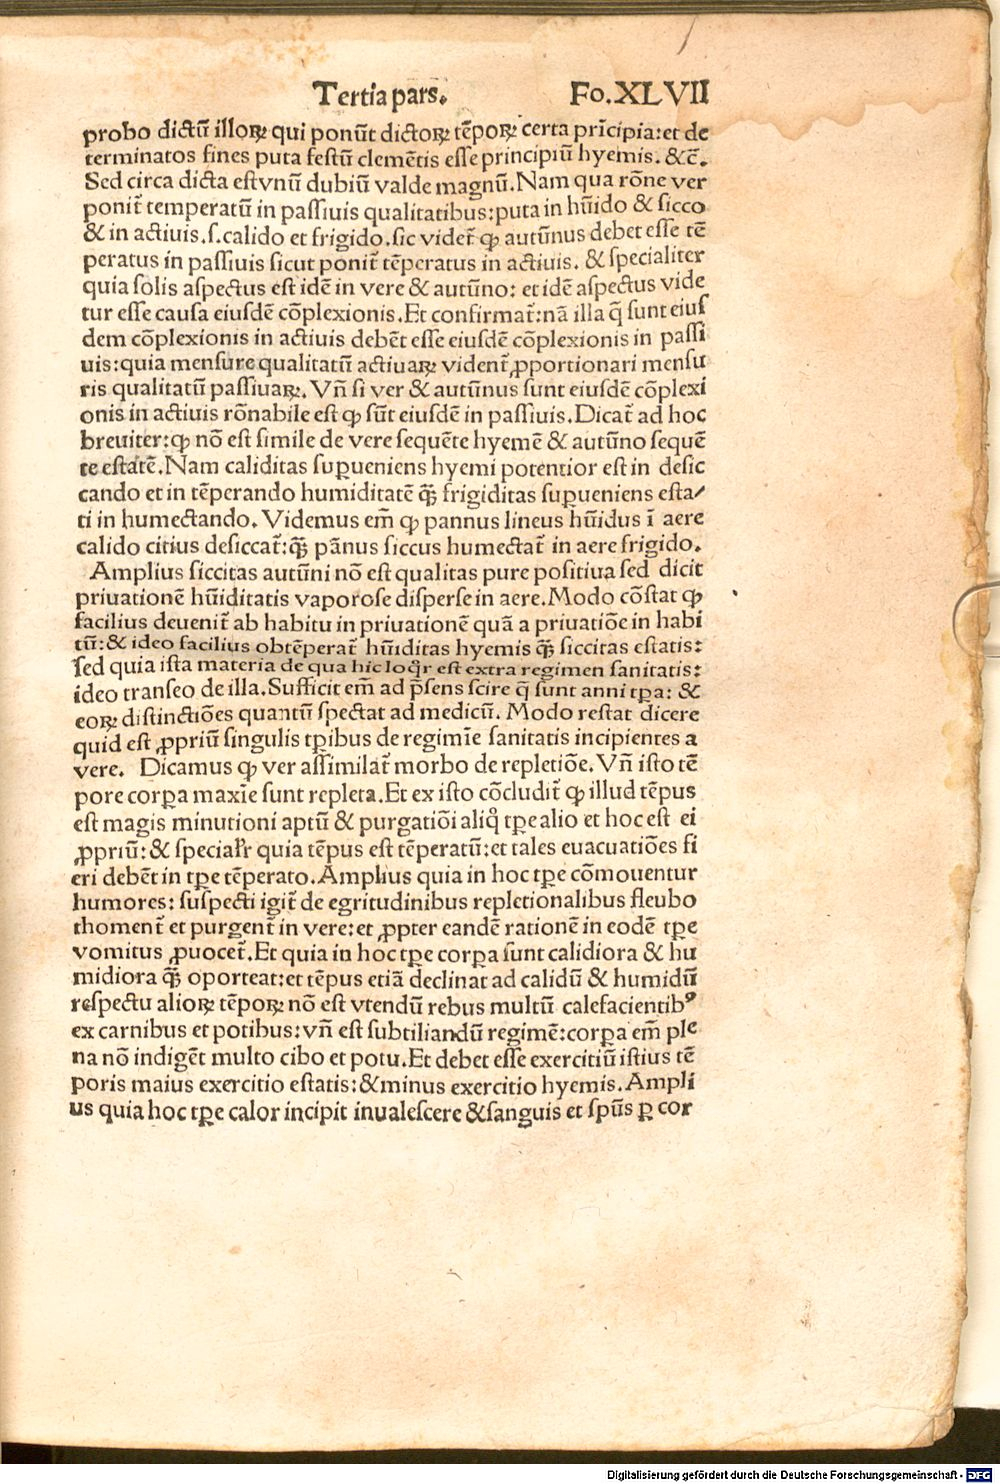 Tertia pars. Fo. XLVII
probo dictū illoꝝ qui ponūt dictoꝝ tēpoꝝ certa prīcipia: et de
terminatos fines puta festū clemētis esse principiū hyemis. &c̄.
Sed circa dicta est vnū dubiū valde magnū. Nam qua rōne ver
ponit̄ temperatū in passiuis qualitatibus: puta in hūido & sicco
& in actiuis .s. calido et frigido. sic videt̄ ꝙ autūnus debet esse tē
peratus in passiuis sicut ponit̄ tēperatus in actiuis. & specialiter
quia solis aspectus est idē in vere & autūno: et idē aspectus vide
tur esse causa eiusdē cōplexionis. Et confirmat̄: nā illa q̄ sunt eius
dem cōplexionis in actiuis debēt esse eiusdē cōplexionis in passi
uis: quia mensure qualitatū actiuaꝝ vident̄ ꝓportionari mensu
ris qualitatū passiuaꝝ. Vn̄ si ver & autūnus sunt eiusdē cōplexi
onis in actiuis rōnabile est ꝙ sūt eiusdē in passiuis. Dicat̄ ad hoc
breuiter: ꝙ nō est simile de vere sequēte hyemē & autūno sequē
te estatē. Nam caliditas suꝑueniens hyemi potentior est in desic
cando et in tēperando humiditatē q̄ꝫ frigiditas suꝑueniens esta/
ti in humectando. Videmus em̄ ꝙ pannus lineus hūidus ī aere
calido citius desiccat̄: q̄ꝫ pānus siccus humectat̄ in aere frigido.
Amplius siccitas autūni nō est qualitas pure positiua sed dicit
priuationē hūiditatis vaporose disperse in aere. Modo cōstat ꝙ
facilius deuenit̄ ab habitu in priuationē quā a priuatiōe in habi
tū: & ideo facilius obtēperat̄ hūiditas hyemis q̄ꝫ siccitas estatis:
sed quia ista materia de qua hic loqr̄ est extra regimen sanitatis:
ideo transeo de illa. Sufficit em̄ ad p̄sens scire q̄ sunt anni tꝑa: &
eoꝝ distinctiōes quantū spectat ad medicū. Modo restat dicere
quid est ꝓpriū singulis tꝑibus de regimīe sanitatis incipientes a
vere. Dicamus ꝙ ver assimilat̄ morbo de repletiōe. Vn̄ isto tē
pore corꝑa maxīe sunt repleta. Et ex isto cōcludit̄ ꝙ illud tēpus
est magis minutioni aptū & purgatiōi aliq̄ tꝑe alio et hoc est ei
ꝓpriū: & specialr̄ quia tēpus est tēperatū: et tales euacuatiōes fi
eri debēt in tꝑe tēperato. Amplius quia in hoc tꝑe cōmouentur
humores: suspecti igit̄ de egritudinibus repletionalibus fleubo
thoment̄ et purgent̄ in vere: et ꝓpter eandē rationē in eodē tꝑe
vomitus ꝓuocet̄. Et quia in hoc tꝑe corꝑa sunt calidiora & hu
midiora q̄ꝫ oporteat: et tēpus etiā declinat ad calidū & humidū
respectu alioꝝ tēpoꝝ nō est vtendū rebus multū calefacientibꝰ
ex carnibus et potibus: vn̄ est subtiliandū regimē: corꝑa em̄ ple
na nō indigēt multo cibo et potu. Et debet esse exercitiū istius tē
poris maius exercitio estatis: & minus exercitio hyemis. Ampli
us quia hoc tꝑe calor incipit inualescere & sanguis et spūs ꝑ cor
Digitalisierung gefördert durch die Deutsche Forschungsgemeinschaft - DFG